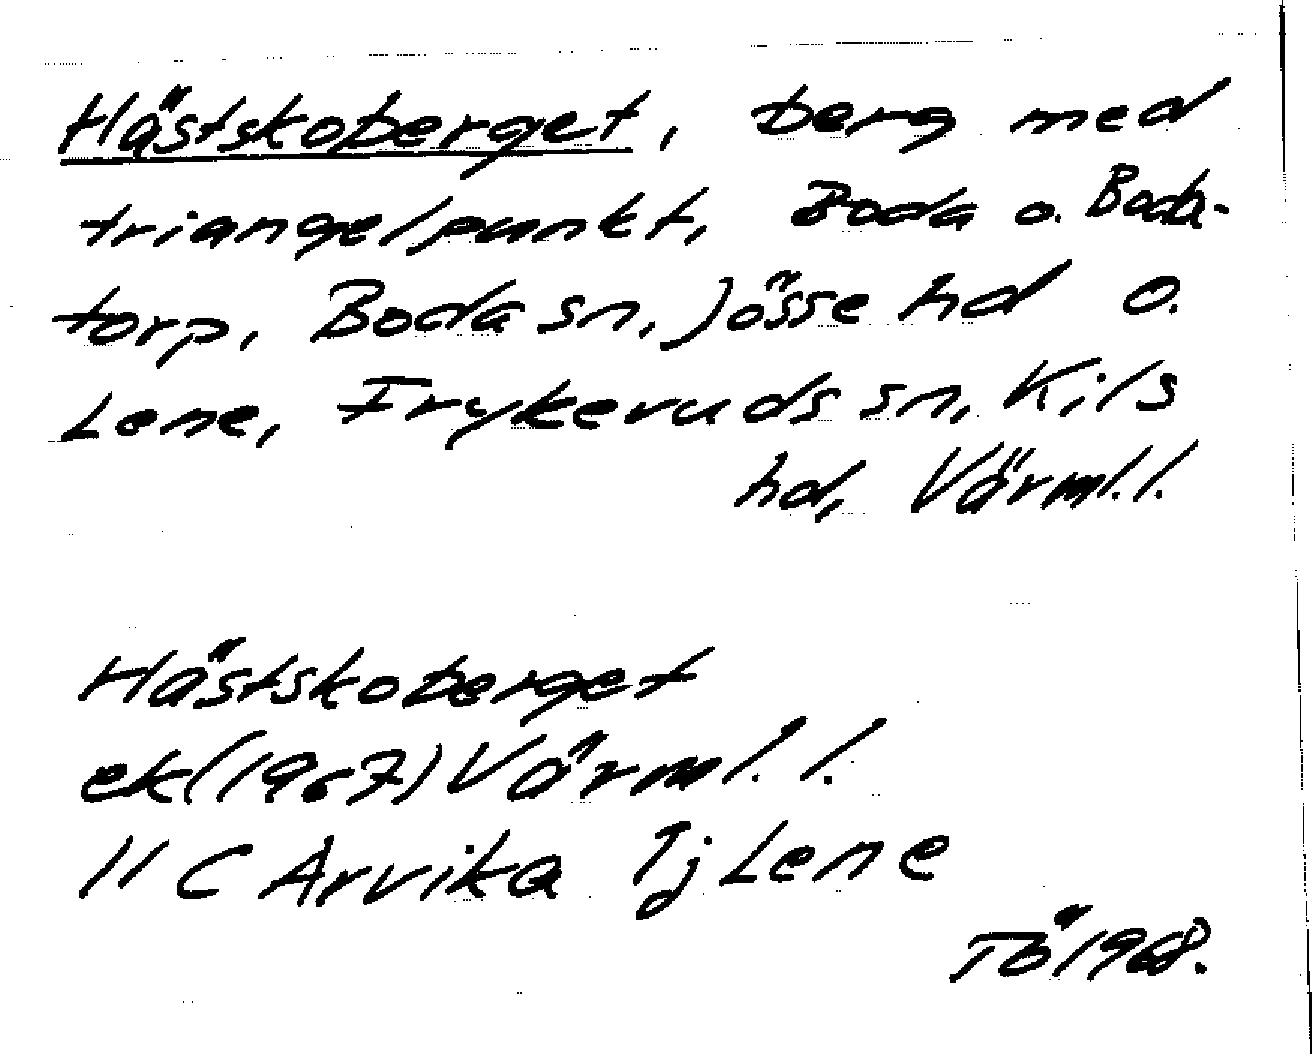 Hästskoberget, berg med
triangelpunkt, Boda o. Boda-
torp, Boda sn, Jösse hd o.
Lene, Frykeruds sn, Kils
hd, Värml.l.
Hästskoberget
ek (1967) Värml. l.
11 C Arvika 1j Lene
TÖ 1968.